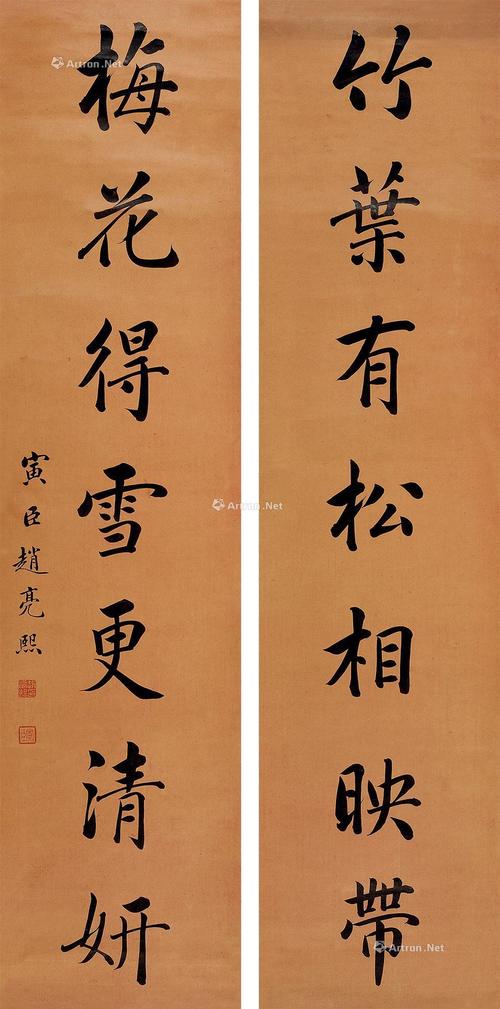 竹葉有松相映帶
梅花得雪更清妍
寅臣趙亮熙
Artron.Net
Artron.Net
Artron.Net